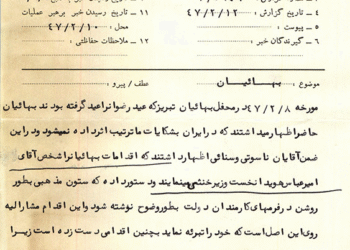 ۴ _ تاریخ گزارش : ۴۷/۲/۱۲
۵ _ پیوست :
۶ _ گیرندگان خبر :
۱۱ _ تاریخ رسیدن خبر برهبر عملیات
محل : ۴۷/۲/۱۰
۱۲ _ ملاحظات حفاظتی :
موضوع : بهائیان عطف / پیرو :
مورخه ۴۷/۲/۸ در محفل بهائیان تبریز که عید رضوان را عید گرفته بودند بهائیان
حاضر اظهار میداشتند که در ایران بشکایات ما ترتیب اثر داده نمیشود و در این
ضمن آقایان ناسوتی و سنائی اظهار داشتند که اقدامات بهائیان را شخص آقای
امیرعباس هویدا نخست وزیر خنثی مینماید و دستور داده که ستون مذهبی بطور
روشن در فرمهای کارمندان دولت بطور وضوح نوشته شود و این اقدام مشارالیه
روی این اصل است که خود را تبرئه نماید بچنین اقدامی دست زده است زیرا